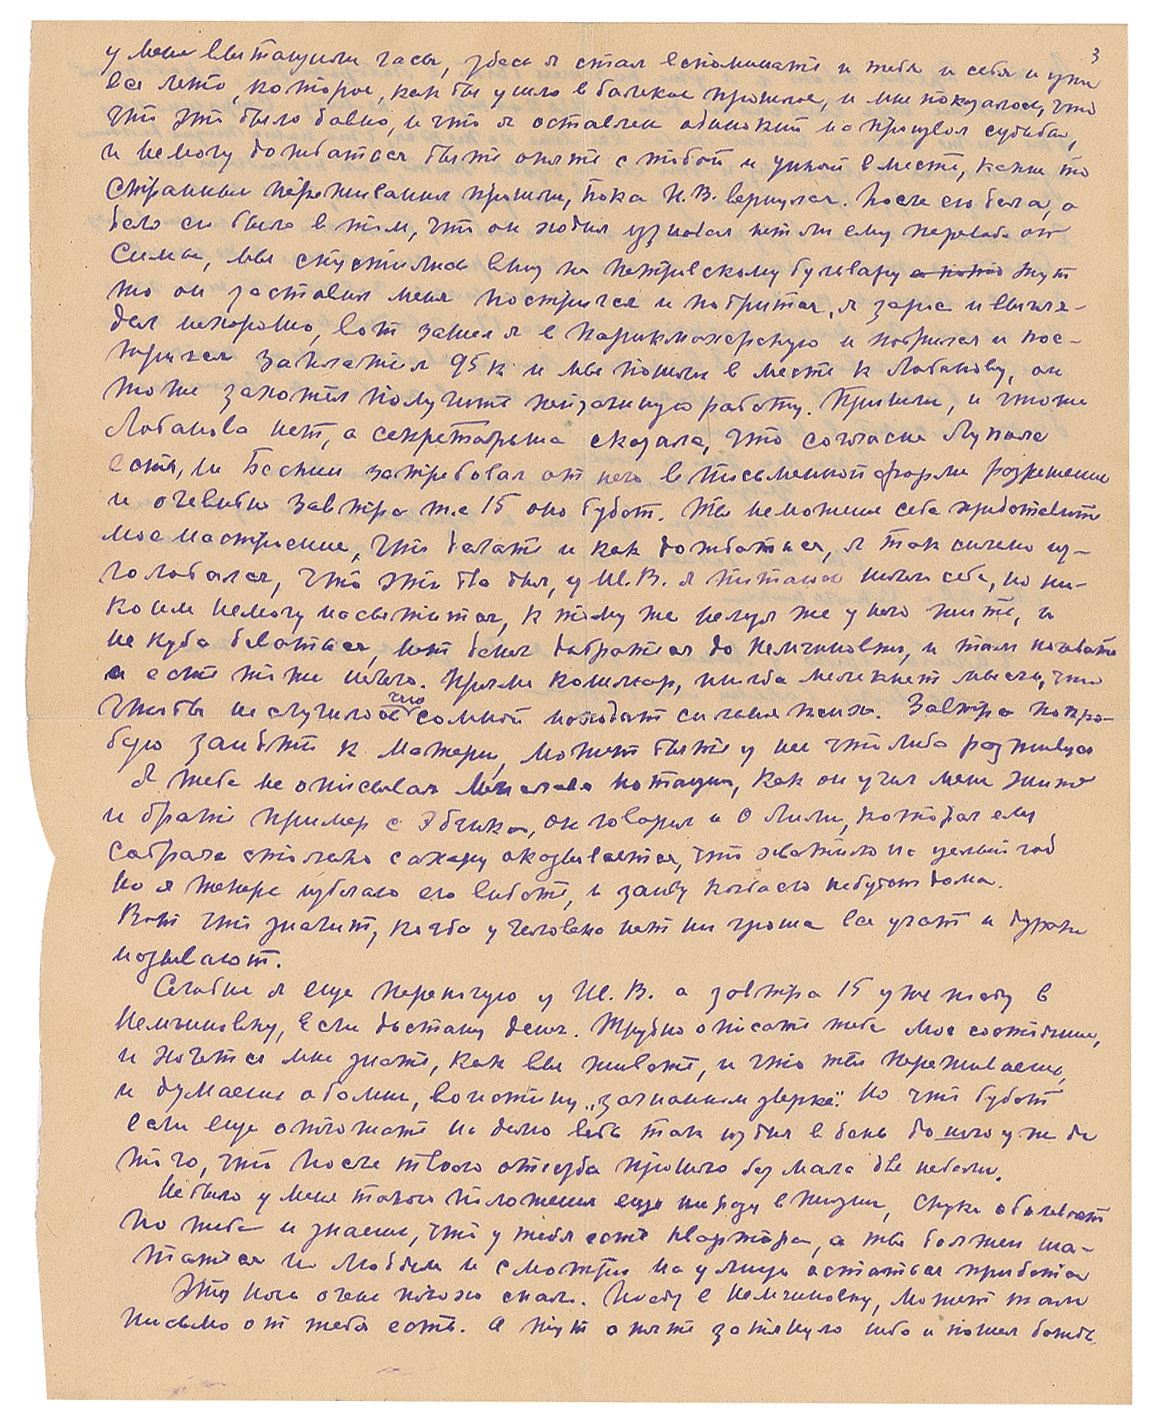 3
у меня вытащили часы, здесь я стал вспоминать и тебя и себя и уны
все лето, которое, как бы ушло в далекое прошлое, и мне показалось, что
что это было давно, и что я оставлен одинокий на произвол судьбы,
и немогу дождаться быть опять с тобой и уной вместе, какие то
странные переживания прошли, пока И.В. вернулся. После его дела, а
дело его было в том, что он ходил узнавал нет ли ему перевода от
Симы, мы спустились вниз по петровскому бульвару а потом тут
то он заставил меня постричся и побрится, я зарос и выгля-
дел нехорошо, вот зашел я в парикмахерскую и побрился и пос-
тригся заплатил 95 к и мы пошли в месте к Лобанову, он
тоже захотел получить неизданную работу. Пришли, и что же
Лобанова нет, а секретарша сказала, что согласие Луппола
есть, но Бескин затребовал от него в письменной форме разрешение
и очевидно завтра т.е 15 оно будет. Ты неможешь себе представить
мое настроение, что делать и как дождаться, я так сильно из-
голодался, что это беда, у И.В. я питаюсь ничего себе, но ни-
коим немогу насытится, к тому же нельзя же у него жить, и
некуда деваться, нет денег добратся до Немчиновки, и там ночевать
а есть тоже нечего. Прямо кошмар, иногда мелькнет мысль, что
что бы не случилось что со мной находит сильная тоска. Завтра попро-
бую заидти к матери, может быть у нее что либо разживусь
Я тебе не описывал нотации, как он учил меня жить
и брать пример с Эдика, он говорил и о Лили, которая ему
собрала столько сахару оказывается, что хватило на целый год
но я теперь избегаю его видеть, и зайду когда его небудет дома.
Вот что значит, когда у человека нет ни гроша все учат и дураком
называют.
Сегодня я еще переночую у И.В. а завтра 15 уже поеду в
Немчиновку, если достану денег. Трудно описать тебе мое состояние,
и хочется мне знать, как вы живете, и что ты переживаешь,
и думаешь обо мне, воистину „загнанном зверке". Но что будет
если еще отложат на долго ведь так изо дня в день до того уже до
того, что после твоего отъезда прошло без мала две недели.
Не было у меня такого положения еще ни разу в жизни, скука одолевает
по тебе и знаешь, что у тебя есть квартира, а ты должен ша-
таться по людям и смотри на улице остаться придется
Эту ночь очень плохо спал. Поеду в Немчиновку, может там
письмо от тебя есть. А тут опять затянуло небо и пошел дождь